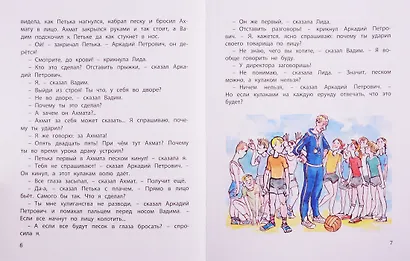 видела, как Петька нагнулся, набрал песку и бросил Ах-
мату в лицо. Ахмат закрылся руками и так стоит, а Ва-
дим подскочил к Петьке да как стукнет в нос.
— Ой! — закричал Петька. — Аркадий Петрович, он де-
рётся!
— Смотрите, до крови! — крикнула Лида.
— Кто это сделал? Отставить прыжки, — сказал Ар-
кадий Петрович.
— Я, — сказал Вадим.
— Выйди из строя! Ты что, у себя во дворе?
— Не во дворе, — сказал Вадим.
— Почему ты это сделал?
— А зачем он Ахмата?..
— Ахмат за себя может сказать. Я спрашиваю, почему
ты ударил?
— Я же говорю: за Ахмата!
— Опять двадцать пять! При чём тут Ахмат? Почему
ты во время урока драку устроил?
— Петька первый в Ахмата песком кинул! — сказала я.
— Тебя не спрашивают! — сказал Аркадий Петрович. —
Он кинул, а этот кулакам волю даёт.
— Все глаза засыпал, — сказал Ахмат. — Получит ещё.
— Да-а, — сказал Петька с плачем. — Прямо в лицо
бьёт. Самого бы так. Что я сделал?
— Ты мне хулиганства не разводи, — сказал Аркадий
Петрович и помахал пальцем перед носом Вадима. —
Если все начнут по лицу колотить...
— А если все будут песок в глаза бросать? — спро-
сила я.
6
— Он же первый, — сказала Лида.
— Отставить разговоры! — крикнул Аркадий Петро-
вич. — Я, кажется, ясно спрашиваю: почему ты ударил
своего товарища по лицу?
— Не знаю, — сказал Вадим. — Я не
выношу, когда в глаза песком.
— У директора заговоришь!
— Не понимаю, — сказала Лида. — Значит, песком
можно, а кулаком нельзя?
— Ничем нельзя, — сказал Аркадий Петрович. —
Но если кулаками на каждую ерунду отвечать, что это
будет?
7